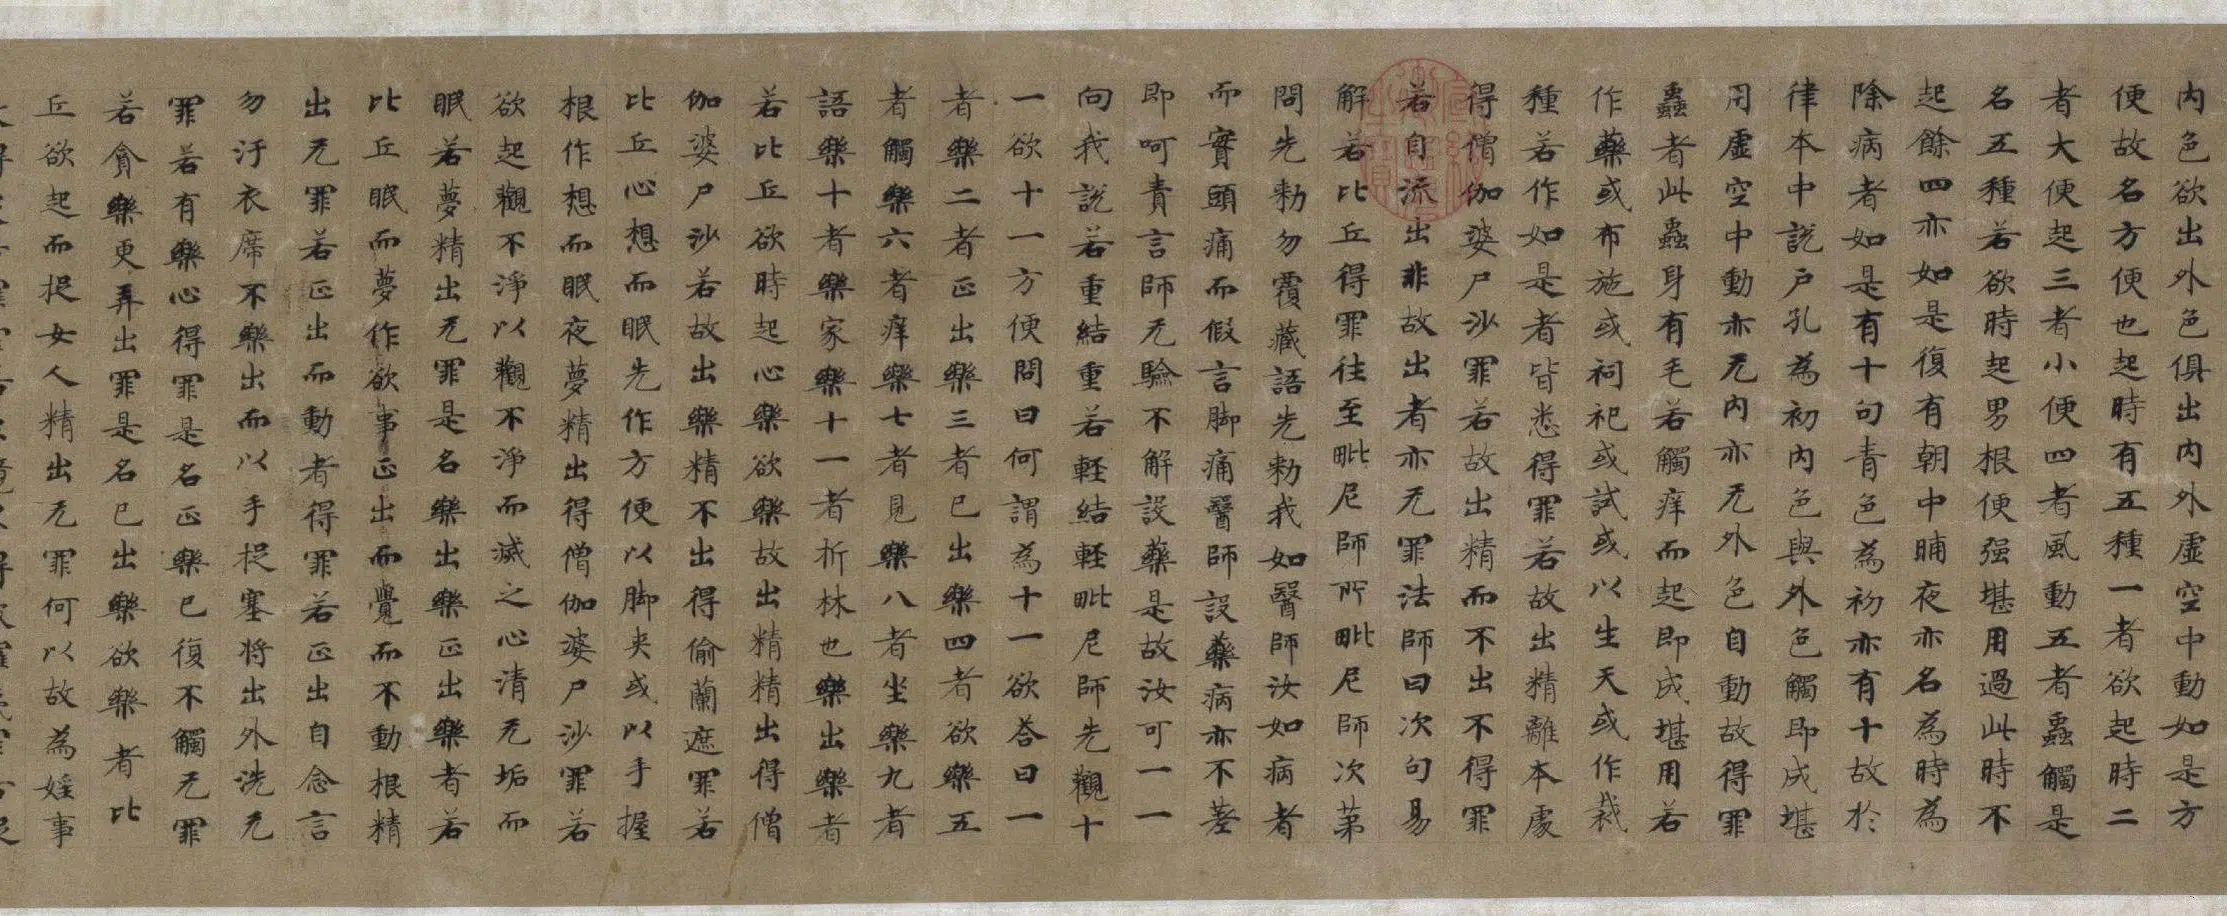 內色欲出外色俱出內外虛空中動如是方
便故名方便也起時有五種一者欲起時二
者大便起三者小便四者風動五者蟲觸是
名五種若欲時起男根便强堪用過此時不
起餘四亦如是復有朝中晡夜亦名為時為
除病者如是有十句青色為初亦有十故於
律本中說戶孔為初內色與外色觸即成堪
用虛空中動亦无內亦无外色自動故得罪
蟲者此蟲身有毛若觸痒而起即成堪用若
作藥或布施或祠祀或試或以生天或作栽
種若作如是者皆悉得罪若故出精離本處
得僧伽婆尸沙罪若故出精而不出不得罪
若自流出非故出者亦无罪法師曰次句易
解若比丘得罪往至毗尼師所毗尼師次第
問先勑勿覆藏語先勑我如醫師汝如病者
而實頭痛而假言脚痛醫師設藥病亦不差
即呵責言師无驗不解設藥是故汝可一一
向我說若重結重若輕結輕毗尼師先觀十
一欲十一方便問曰何謂為十一欲荅曰一
者樂二者正出樂三者已出樂四者欲樂五
者觸樂六者痒樂七者見樂八者坐樂九者
語樂十者樂家樂十一者折林也樂出樂者
若比丘欲時起心樂欲樂故出精精出得僧
伽婆尸沙若故出樂精不出得偷蘭遮罪若
比丘心想而眠先作方便以脚夾或以手握
根作想而眠夜夢精出得僧伽婆尸沙罪若
欲起觀不淨以觀不淨而滅之心清无垢而
眠若夢精出无罪是名樂出樂正出樂者若
比丘眠而夢作欲事正出而覺而不動根精
出无罪若正出而動者得罪若正出自念言
勿汙衣席不樂出而以手捉塞將出外洗无
罪若有樂心得罪是名正樂已復不觸无罪
若貪樂更弄出罪是名已出樂欲樂者比
丘欲起而捉女人精出无罪何以故為婬事